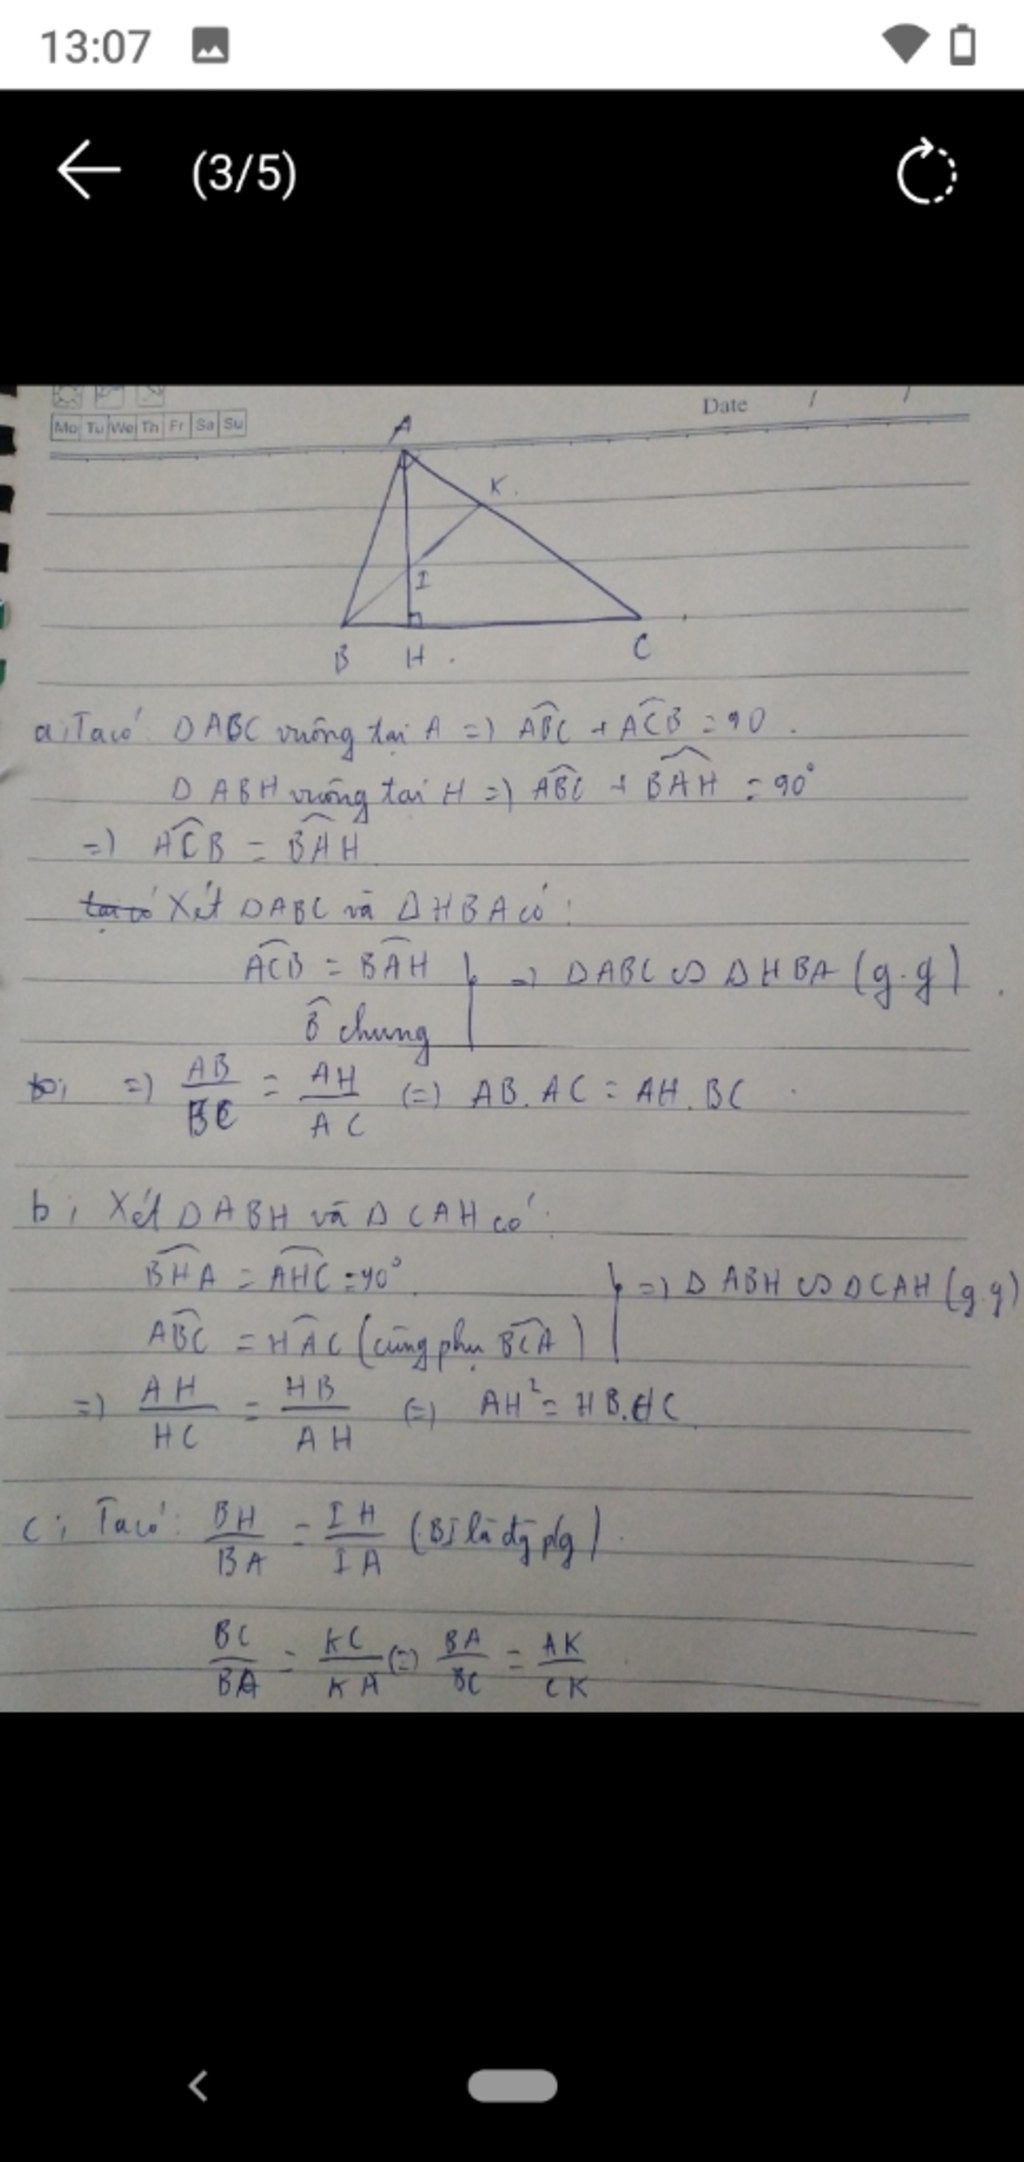 13:07
(3/5)
Mo Tu We Th Fr Sa Su
Date / /
A
K.
I
B H . C
a; Ta có: ΔABC vuông tại A => ∠ABC + ∠ACB = 90.
ΔABH vuông tại H => ∠ABC + ∠BAH = 90°
=> ∠ACB = ∠BAH
Xét ΔABC và ΔHBA có:
∠ACB = ∠BAH } => ΔABC ∽ ΔHBA (g.g).
∠B chung
b; => AB/BC = AH/AC (=) AB.AC = AH.BC
b; Xét ΔABH và ΔCAH có:
∠BHA = ∠AHC = 90° } => ΔABH ∽ ΔCAH (g.g)
∠ABC = ∠HAC (cùng phụ ∠BCA)
=> AH/HC = HB/AH (=) AH² = HB.HC
c; Ta có: BH/BA = IH/IA (BI là đg p/g).
BC/BA = KC/KA (=) BA/BC = AK/CK